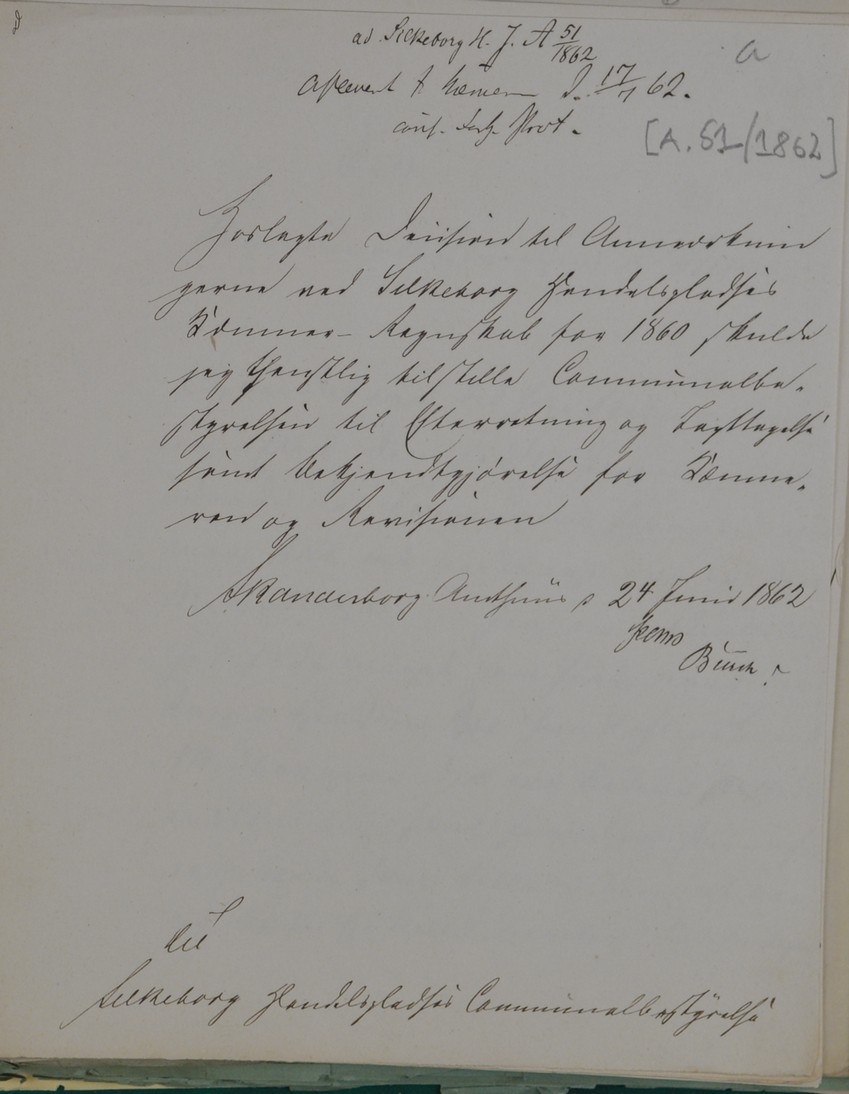 ad Silkeborg H. J. A 51/1862
a
Afleveret t. Kæmner d. 17/7 62.
conf. Forh. Prot.
[A. 51/1862]
Hoslagte Decision til Anmærknin
gerne ved Silkeborg Handelspladses
Kæmner-Regnskab for 1860 skulde
jeg tjenstlig tilstille Communalbe-
styrelsen til Efterretning og Iagttagelse
samt Bekjendtgjørelse for Kæmne-
ren og Revisionen
Skanderborg Amthuus d 24 Juni 1862
Til
Silkeborg Handelspladses Communalbestyrelse